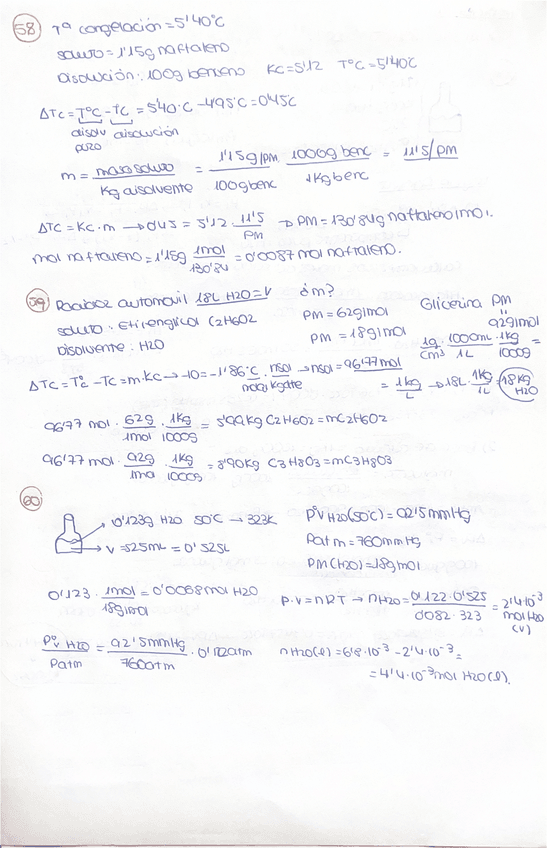 58 Tª congelación = 5'40°C
soluto = 1'15g naftaleno
Disolución: 100g benceno Kc = 5'12 T°C = 5'40°C
ΔTc = T°C - TC = 5'40°C - 4'95°C = 0'45°C
disolu disolución
puro
m = masa soluto / Kg disolvente = 1'15g/PM / 100g benc · 1000g benc / 1Kg benc = 11'5/PM
ΔTC = Kc · m → 0'45 = 5'12 · 11'5/PM → PM = 130'84g naftaleno/mol.
mol naftaleno = 1'15g · 1mol/130'84 = 0'0087 mol naftaleno.
59 Radiador automovil 18L H2O = V ¿m? Glicerina PM
soluto: Etilenglicol C2H6O2 PM = 62g/mol 92g/mol
Disolvente: H2O PM = 18g/mol 1g/cm³ · 1000mL/1L · 1Kg/1000g =
ΔTC = T°C - TC = m · Kc → -10 = -1'86°C · nsol → nsol = 96'77mol = 1Kg/L → 18L · 1Kg/1L = 18Kg H2O
96'77 mol · 62g/1mol · 1Kg/1000g = 5'99Kg C2H6O2 = mC2H6O2
96'77 mol · 92g/1mol · 1Kg/1000g = 8'90Kg C3H8O3 = mC3H8O3
60 0'123g H2O 50°C → 323K P°V H2O(50°C) = 92'5mmHg
V = 525mL = 0'525L Patm = 760mmHg
PM(H2O) = 18g/mol
0'123 · 1mol/18g/mol = 0'0068mol H2O P·V = nRT → nH2O = 0'122·0'525 / 0'082·323 = 2'4·10⁻³ mol H2O (v)
P°V H2O / Patm = 92'5mmHg / 760atm · 0'122atm nH2O(l) = 6'8·10⁻³ - 2'4·10⁻³ =
= 4'4·10⁻³ mol H2O(l).